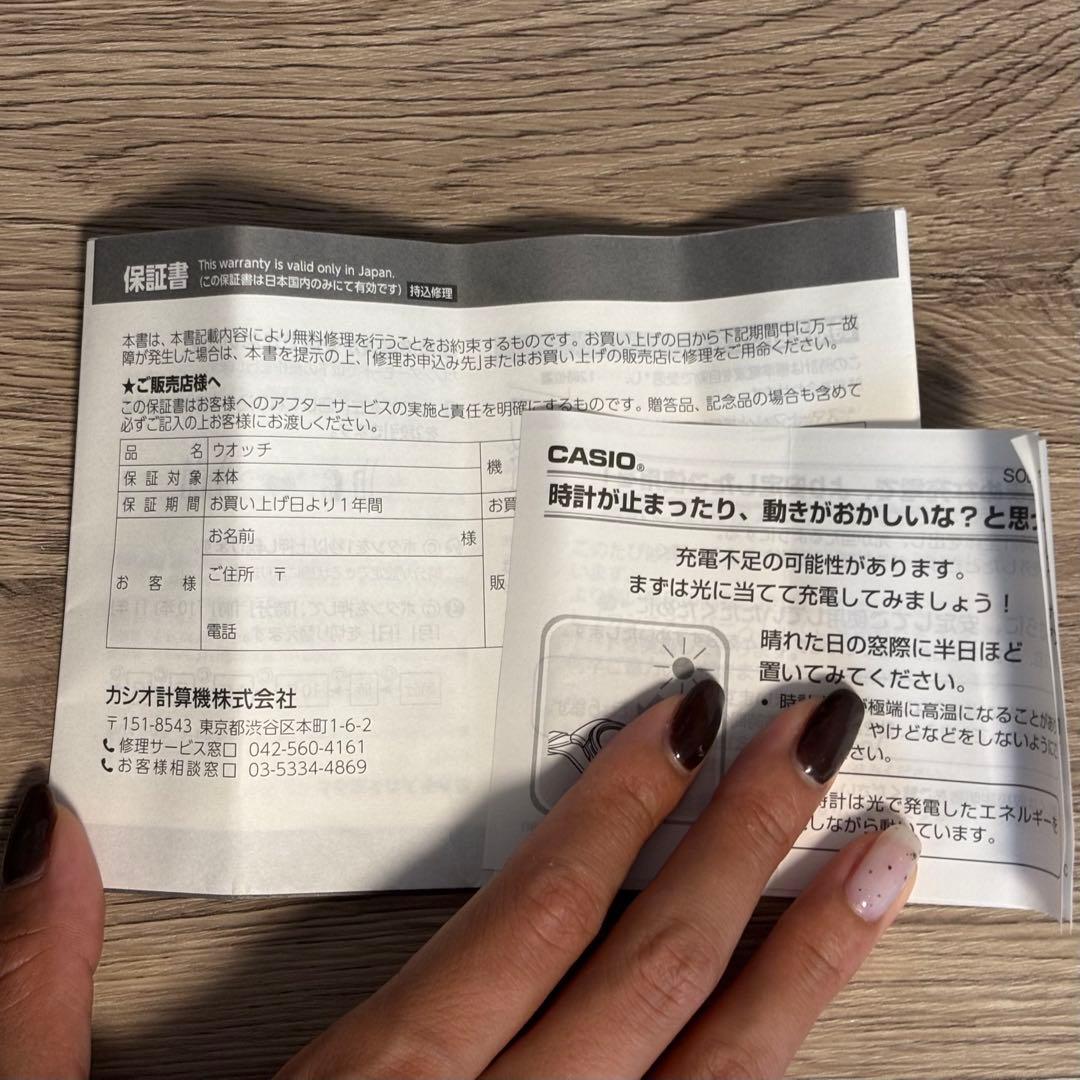 保証書 This warranty is valid only in Japan.
(この保証書は日本国内のみにて有効です) 持込修理
本書は、本書記載内容により無料修理を行うことをお約束するものです。お買い上げの日から下記期間中に万一故
障が発生した場合は、本書を提示の上、「修理お申込み先」またはお買い上げの販売店に修理をご用命ください。
★ご販売店様へ
この保証書はお客様へのアフターサービスの実施と責任を明確にするものです。贈答品、記念品の場合も含めて
必ずご記入の上お客様にお渡しください。
品名 ウオッチ 機
保証対象 本体
保証期間 お買い上げ日より1年間 お買
お客様 お名前 様
ご住所 〒 販
電話
カシオ計算機株式会社
〒151-8543 東京都渋谷区本町1-6-2
修理サービス窓口 042-560-4161
お客様相談窓口 03-5334-4869
CASIO®
時計が止まったり、動きがおかしいな？と思
充電不足の可能性があります。
まずは光に当てて充電してみましょう！
晴れた日の窓際に半日ほど
置いてみてください。
• 時計 極端に高温になることがあ
やけどなどをしないように
さい。
時計は光で発電したエネルギーを
しながら動いています。